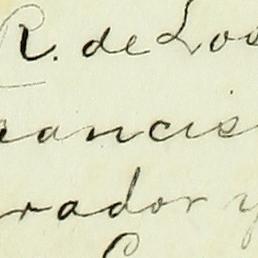 R. de Los
ancis
rador y